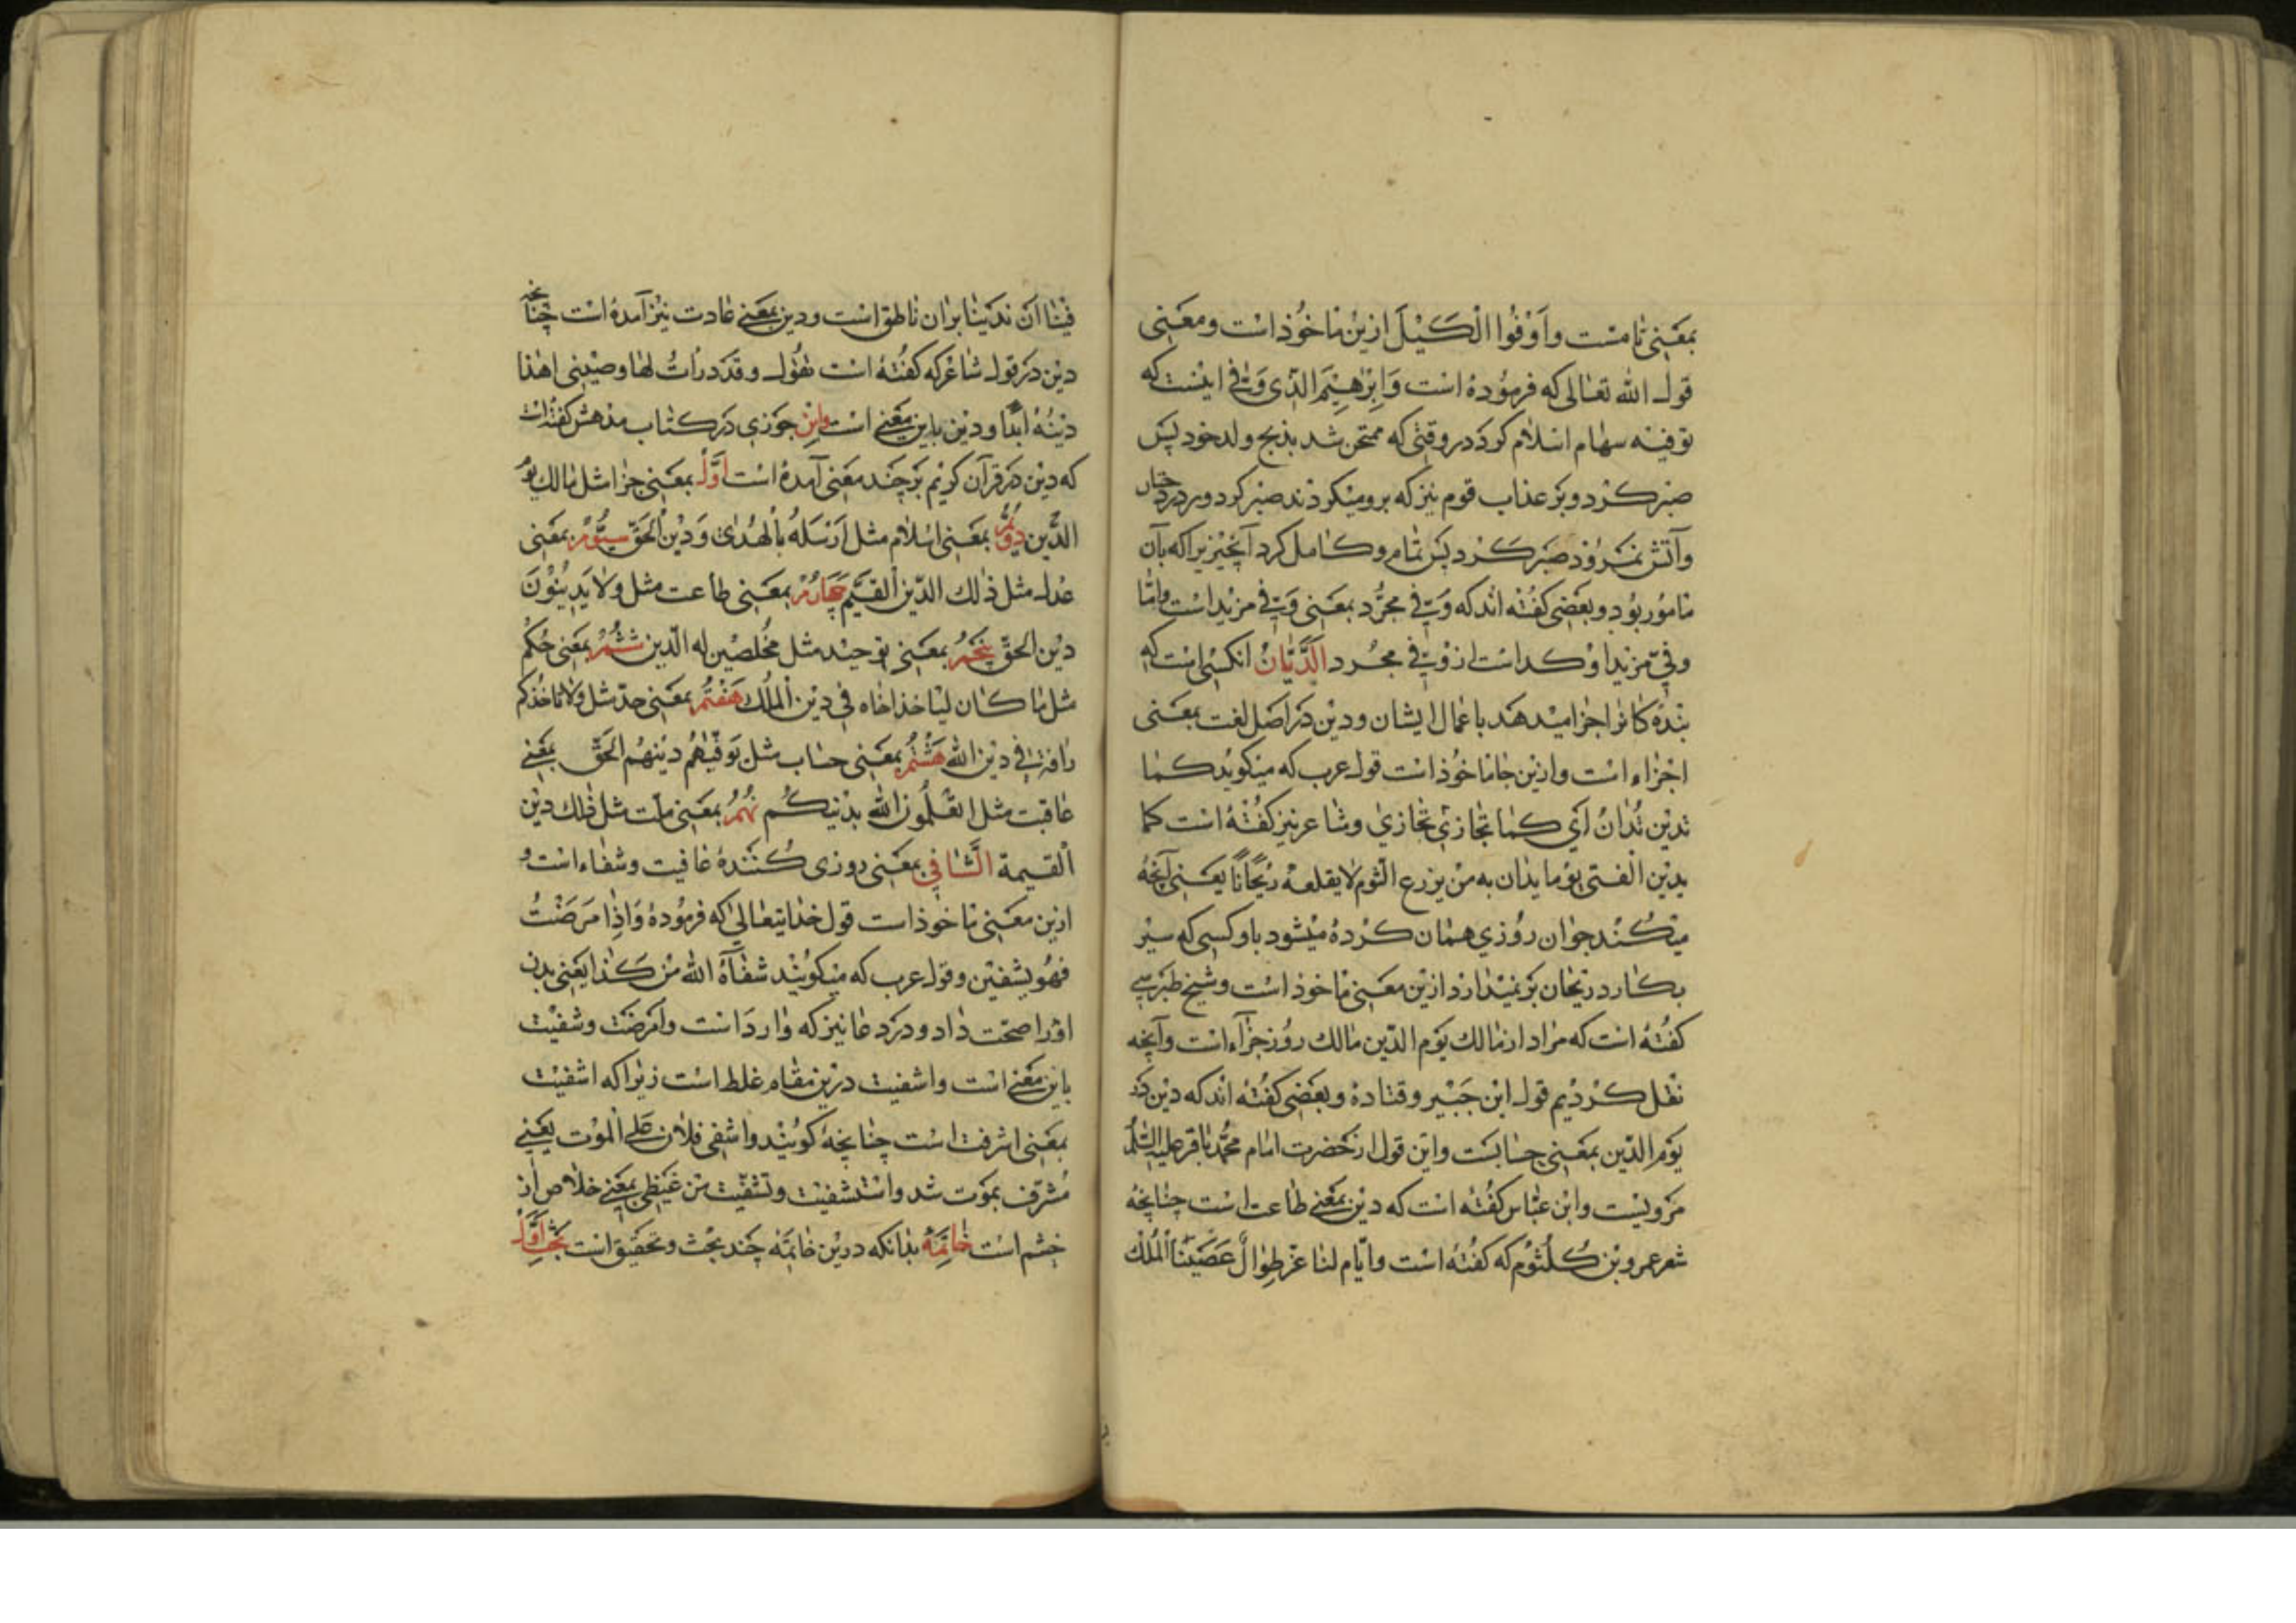 بمعنی تامست و اَوْفُوا الْکَیْلَ ازین ماخوذ است و معنی
قول الله تعالی که فرموده است وَاِبْرٰهِیْمَ الَّذی وَفّٰی اینست که
توفیه سهام اسلام کرد در وقتی که ممتحن شد بذبح ولد خود پس
صبر کرد و بر عذاب قوم نیز که برو میکردند صبر کرد و در
وآتش نمرود صبر کرد پس تمام و کامل کرد آنچیزیرا که بآن
مامور بود و بعضی گفته اند که وفی مجرّد بمعنی وفّی مزید است و امّا
وفّی مزید اوکد است از وفی مجرد الدَّیّانُ آنکسی است که
بنده کانرا جزا میدهد باعمال ایشان و دین در اصل لغت بمعنی
اجزاء است و ازین جا ماخوذ است قول عرب که میکوید کما
تدین تُدانُ اَی کما تجازی تجازی و شاعر نیز گفته است کما
یدین الفتی یوما یدان به من یزرع الثوم لا یقلعه ریحانًا یعنی آنچه
میکند جوان روزی همان کرده میشود باو کسی که سیر
بکارد ریحان بر نمیدارد ازین معنی ماخوذ است و شیخ طبرسی
گفته است که مراد از مالک یوم الدین مالک روز جزآء است و آنچه
نقل کردیم قول ابن جبیر و قتاده و بعضی گفته اند که دین در
یوم الدین بمعنی حسابست و این قول از حضرت امام محمّد باقر علیه السّلم
مرویست و ابن عباس گفته است که دین بمعنی طاعت است چنانچه
شعر عمرو بن کلثوم که گفته است و ایّام لنا غر طوال عَصَیْنَا الْمُلْکَ
فینا اَن ندینا بران ناطق است و دین بمعنی عادت نیز آمده است چنانچه
دین در قول شاعر که گفته است تقول و قد دراتُ لها وضینی اهٰذا
دینُهُ ابدًا و دین باین معنی است وابن جوزی در کتاب مدهش گفته است
که دین در قرآن کریم بر چند معنی آمده است اَوَّل بمعنی جزا مثل مالک یوم
الدّین دوّم بمعنی اسلام مثل اَرْسَلَهُ بِالْهُدیٰ وَدینِ الْحَقّ سیُّوم بمعنی
عدل مثل ذٰلک الدّین القیّم چهارُم بمعنی طاعت مثل و لا یَدینُونَ
دین الحقّ پنجم بمعنی توحید مثل مخلصین له الدّین ششم بمعنی حُکم
مثل ما کان لیاخذ اخاه فی دین الملک هفتم بمعنی حدّ مثل و لا تاخذکم
رافة فی دین الله هشتم بمعنی حساب مثل یوفّیهم دینهم الحقّ بمعنی
عاقبت مثل اتعلّمون الله بدینکم نهم بمعنی ملّت مثل ذٰلک دین
القیمة الشافی بمعنی روزی کننده عافیت و شفاء است و
ازین معنی ماخوذ است قول خدایتعالی که فرموده وَاِذا مَرِضْتُ
فهو یشفین و قول عرب که میکویند شفآهُ الله من کذا یعنی بدن
اورا صحّت داد و در دعا نیز که وارد است و امرضت و شفیت
باین معنی است و اشفیت درین مقام غلط است زیرا که اشفیت
بمعنی اشرفت است چنانچه گویند و اشفی فلان علی الموت یعنی
مُشرف بموت شد و استشفیت و تشفّیت من غیظی بمعنی خلاص از
خشم است خاتِمَه بدانکه درین خاتمه چند بحث و تحقیق است بحث اوّل